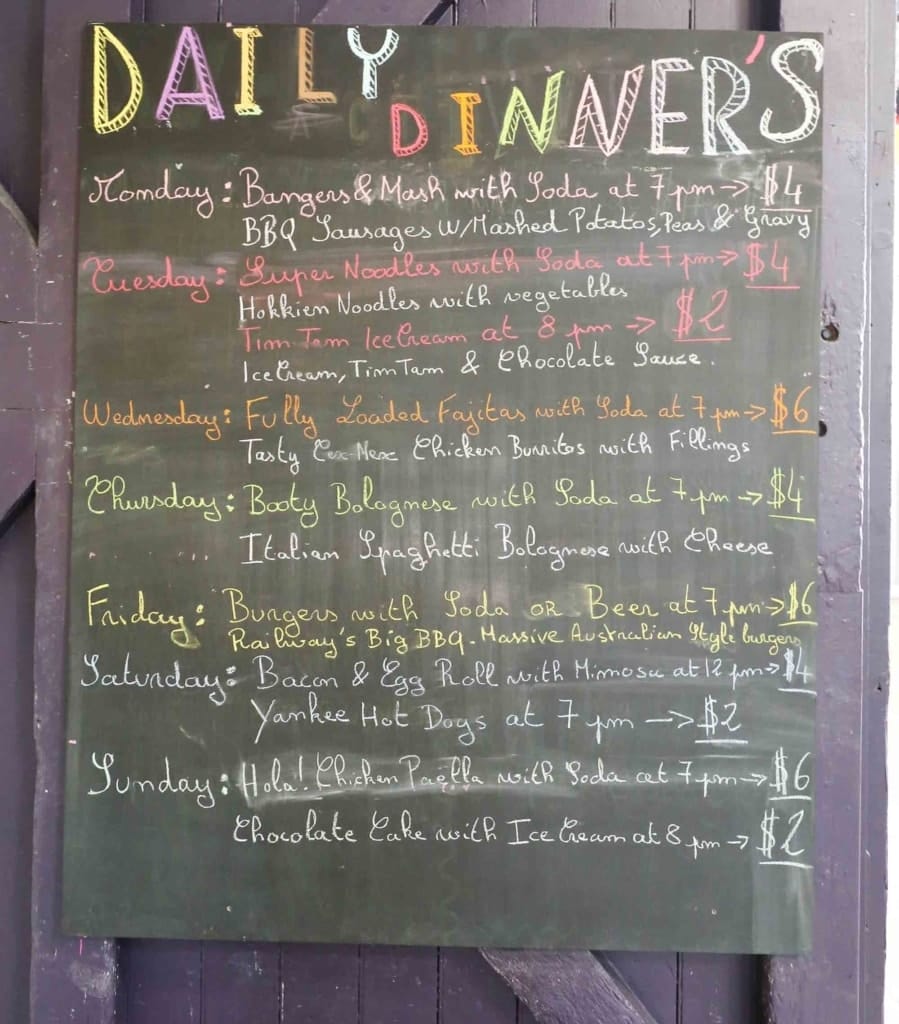 DAILY
DINNER'S
Monday: Bangers & Mash with Soda at 7 pm → $4
BBQ Sausages W/Mashed Potatos, Peas & Gravy
Tuesday: Super Noodles with Soda at 7 pm → $4
Hokkien Noodles with vegetables
Tim Tam IceCream at 8 pm → $2
IceCream, Tim Tam & Chocolate Sauce.
Wednesday: Fully Loaded Fajitas with Soda at 7 pm → $6
Tasty Tex-Mex Chicken Burritos with Fillings
Thursday: Booty Bolognese with Soda at 7 pm → $4
Italian Spaghetti Bolognese with Cheese
Friday: Burgers with Soda OR Beer at 7 pm → $6
Railway's Big BBQ - Massive Australian Style burgers
Saturday: Bacon & Egg Roll with Mimosa at 12 pm → $4
Yankee Hot Dogs at 7 pm → $2
Sunday: Hola! Chicken Paëlla with Soda at 7 pm → $6
Chocolate Cake with Ice Cream at 8 pm → $2